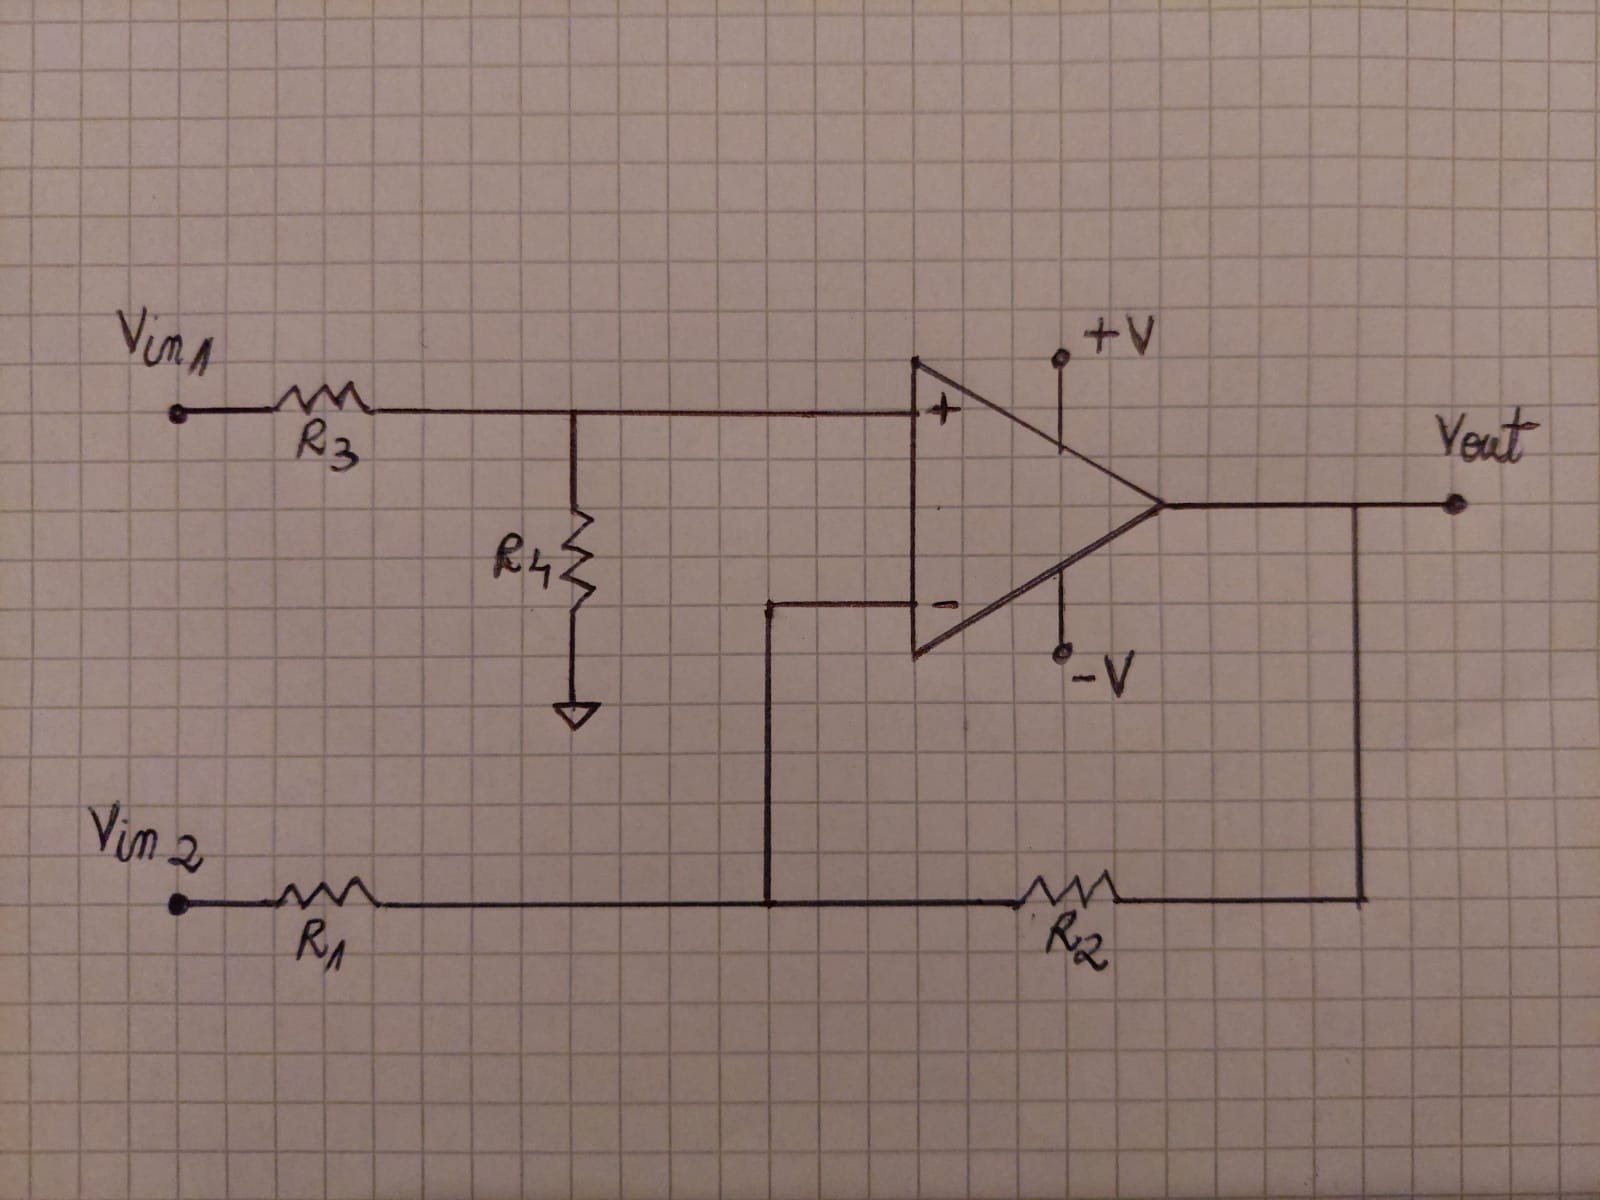 Vin1
R3
R4
+
-
+V
-V
Vout
Vin2
R1
R2